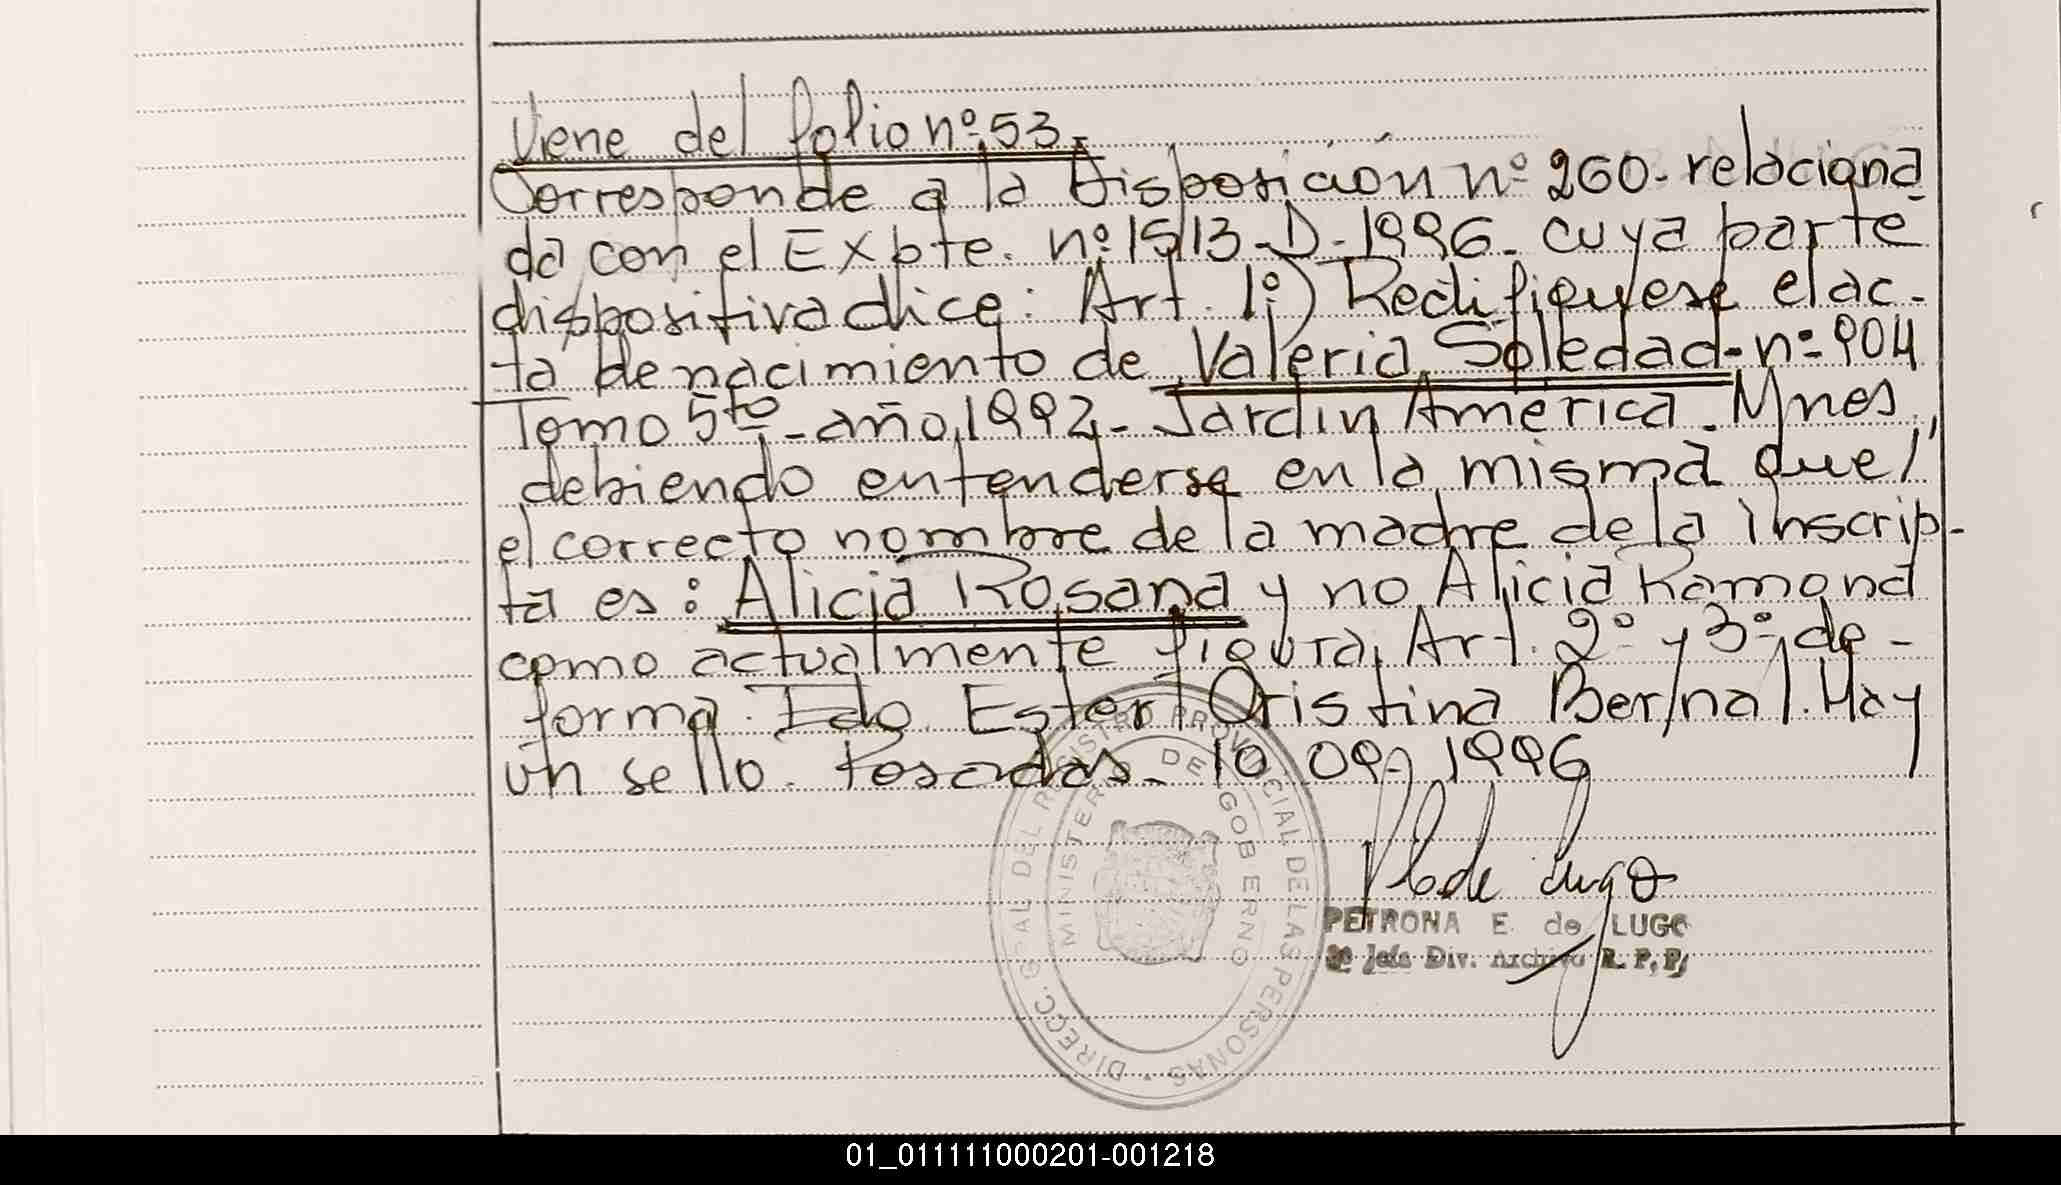 Viene del folio nº 53-
Corresponde a la Disposición nº 260- relaciona
da con el Expte. nº 1513-D-1996- cuya parte
dispositiva dice: Art. 1º) Rectifiquese el ac-
ta de nacimiento de Valeria Soledad- nº 904
Tomo 5to- año 1992- Jardin América. Mnes,
debiendo entenderse en la misma que
el correcto nombre de la madre de la inscrip-
ta es: Alicia Rosana y no Alicia Ramona
como actualmente figura, Art. 2º y 3º, de-
forma. Fdo. Ester Cristina Bernal. Hay
un sello. Posadas- 10 09 1996
PETRONA E. de LUGO
Jefe Div. Archivo R. P. P.
DIRECC. GRAL DEL REGISTRO PROVINCIAL DE LAS PERSONAS
MINISTERIO DE GOBIERNO
01_011111000201-001218